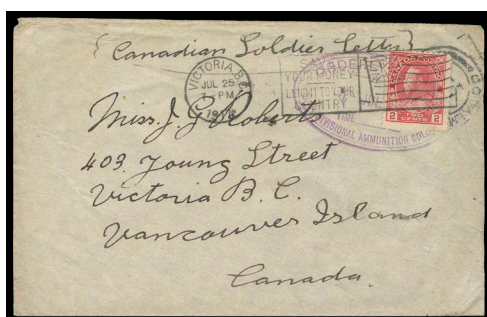 {Canadian Soldier Letter}
VICTORIA, B.C.
JUL 25
7 - PM
1918
YOUR MONEY
LEND IT TO YOUR
COUNTRY
TIME
DIVISIONAL AMMUNITION COL
CANADA POSTAGE
2 TWO CENTS 2
Miss. J. G Roberts
403. Young Street
Victoria B. C.
Vancouver Island
Canada.